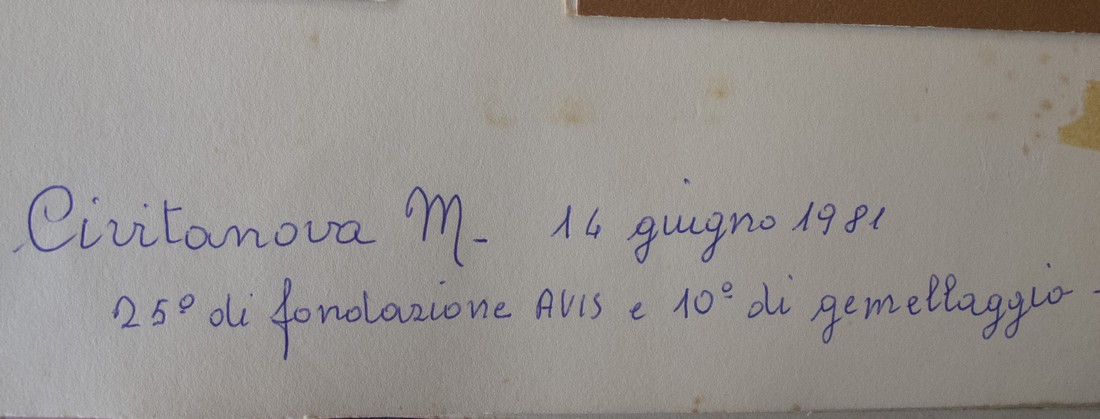 Civitanova M. 14 giugno 1981
25º di fondazione AVIS e 10º di gemellaggio -